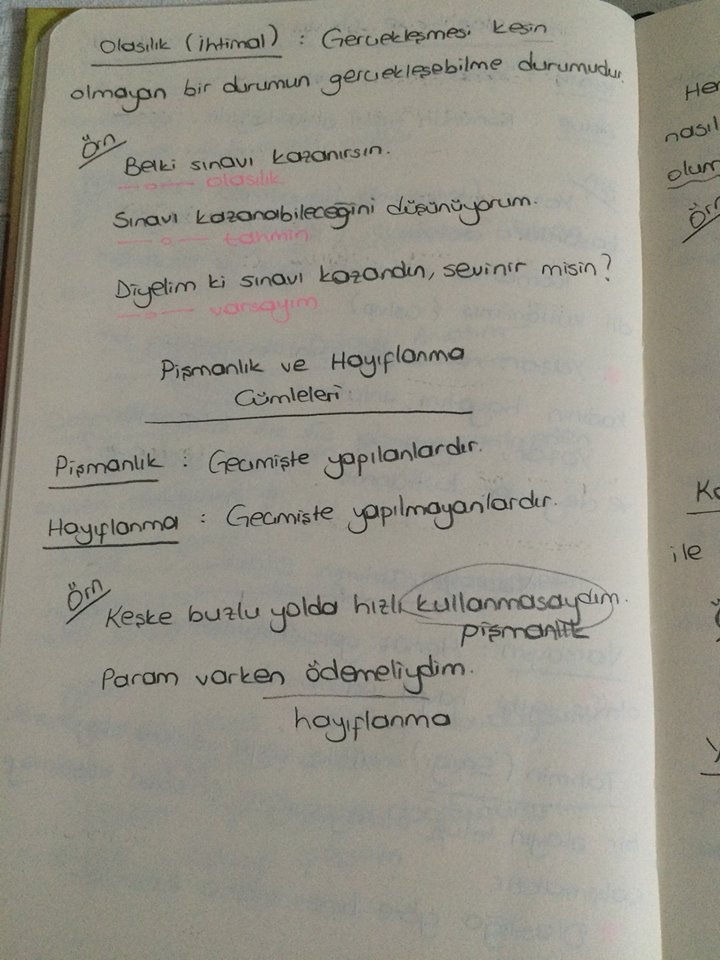 Olasılık (ihtimal) : Gerçekleşmesi kesin
olmayan bir durumun gerçekleşebilme durumudur.
Örn
Belki sınavı kazanırsın.
olasılık
Sınavı kazanabileceğini düşünüyorum.
tahmin
Diyelim ki sınavı kazandın, sevinir misin?
varsayım
Pişmanlık ve Hayıflanma
Cümleleri
Pişmanlık : Geçmişte yapılanlardır.
Hayıflanma : Geçmişte yapılmayanlardır.
Örn
Keşke buzlu yolda hızlı kullanmasaydım.
pişmanlık
Param varken ödemeliydim.
hayıflanma
Her
nasıl
olum
Örn
ile